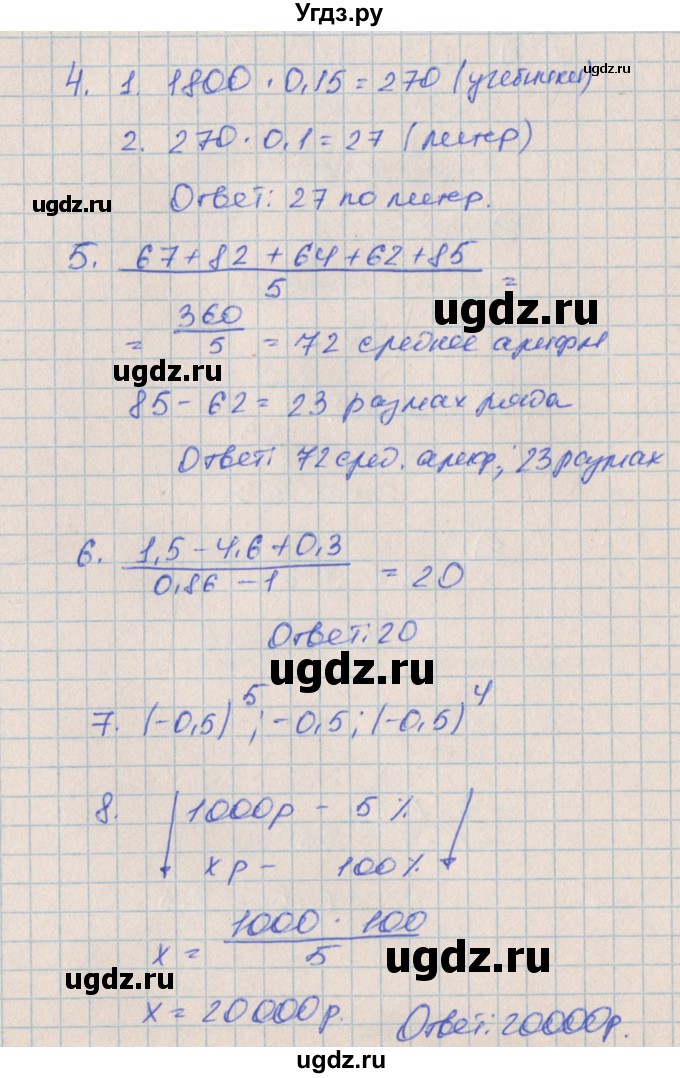 Угдз.ру
ugdz.ru
4. 1. 1800 · 0,15 = 270 (учебники)
2. 270 · 0,1 = 27 (литер)
ugdz.ru
Ответ: 27 по литер.
5. 67+82+64+62+85
5
=
ugdz.ru
= 360
5
= 72 среднее арифм
ugdz.ru
85 - 62 = 23 размах ряда
Ответ: 72 сред. ариф; 23 размах
6. 1,5 - 4,6 + 0,3
0,86 - 1
= 20
Ответ: 20
ugdz.ru
7. (-0,5)⁵; -0,5; (-0,5)⁴
8. 1000р - 5%
ugdz.ru
х р - 100%
х = 1000 · 100
5
ugdz.ru
ugdz.ru
х = 20000р.
Ответ: 20000р.
ugdz.ru